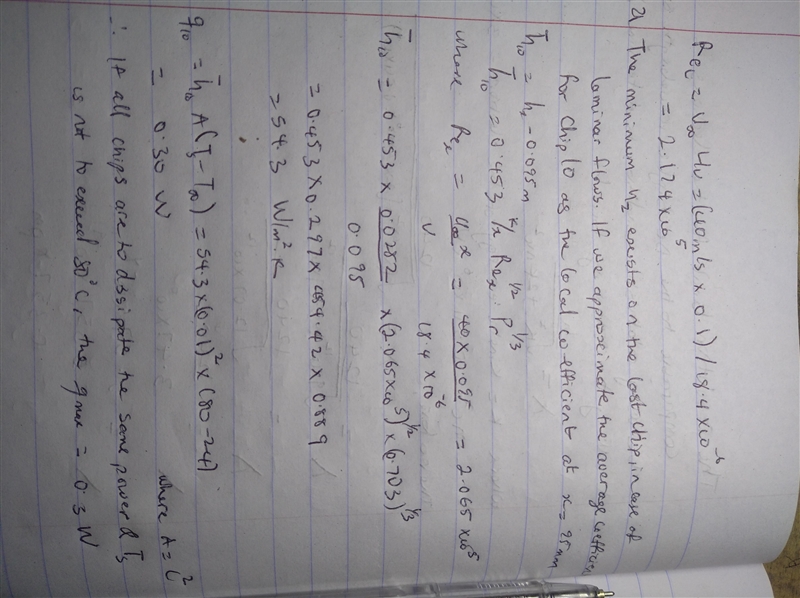 ReL = U∞ L/ν = (40m/s × 0.1) / 18.4 × 10⁻⁶
= 2.174 × 10⁵
2) The minimum hx exists on the last chip, in case of
laminar flows. If we approximate the average coefficien
for chip 10 as the local coefficient at x = 95mm
h̄10 = hx = 0.095m
h̄10 = 0.453 K/x Rex^1/2 . Pr^1/3
where Rex = U∞ x / ν = 40 × 0.095 / 18.4 × 10⁻⁶ = 2.065 × 10⁵
h̄10 = 0.453 × 0.0282 / 0.095 × (2.065 × 10⁵)^1/2 × (0.703)^1/3
= 0.453 × 0.297 × 454.42 × 0.889
= 54.3 W/m².K
q10 = h̄10 A(Ts - T∞) = 54.3 × (0.01)² × (80 - 24) where A = L²
= 0.30 W
∴ If all chips are to dissipate the same power & Ts
is not to exceed 80°C, the qmax = 0.3 W